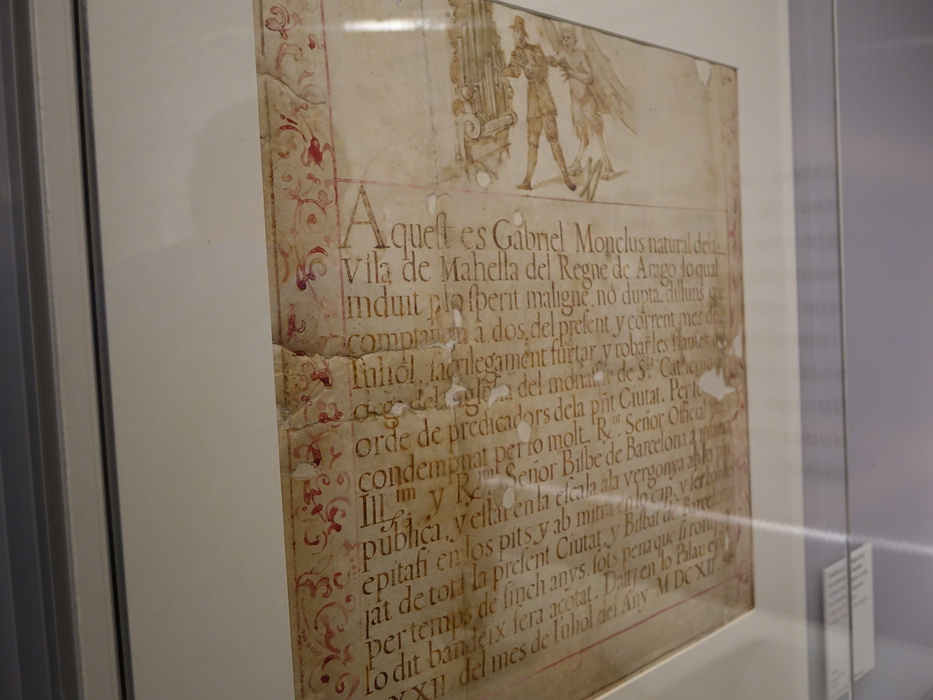 Aquest es Gabriel Monclus natural dela
Vila de Mahella del Regne de Arago lo qual
induit p lo sperit maligne, no dupta, dilluns que
comptauem a dos del present y corrent mes de
Iuliol, sacrilegament furtar, y robar les flautes
del monastir de Sta. Catherina
orde de predicadors dela pñt Ciutat. Per
condempnat per lo molt Rnt. Señor Official
Illm y Rm Señor Bisbe de Barcelona a
publica, y estar en la escala ala vergonya ab lo
epitafi en los pits, y ab mitra en lo cap, y ser
jat de tota la present Ciutat, y Bisbat de Barcelona
per temps de sinch anys, sots pena que si romp
lo dit bandeix sera açotat. Datt en lo Palau
XXII del mes de Iuliol del Any M DC XII